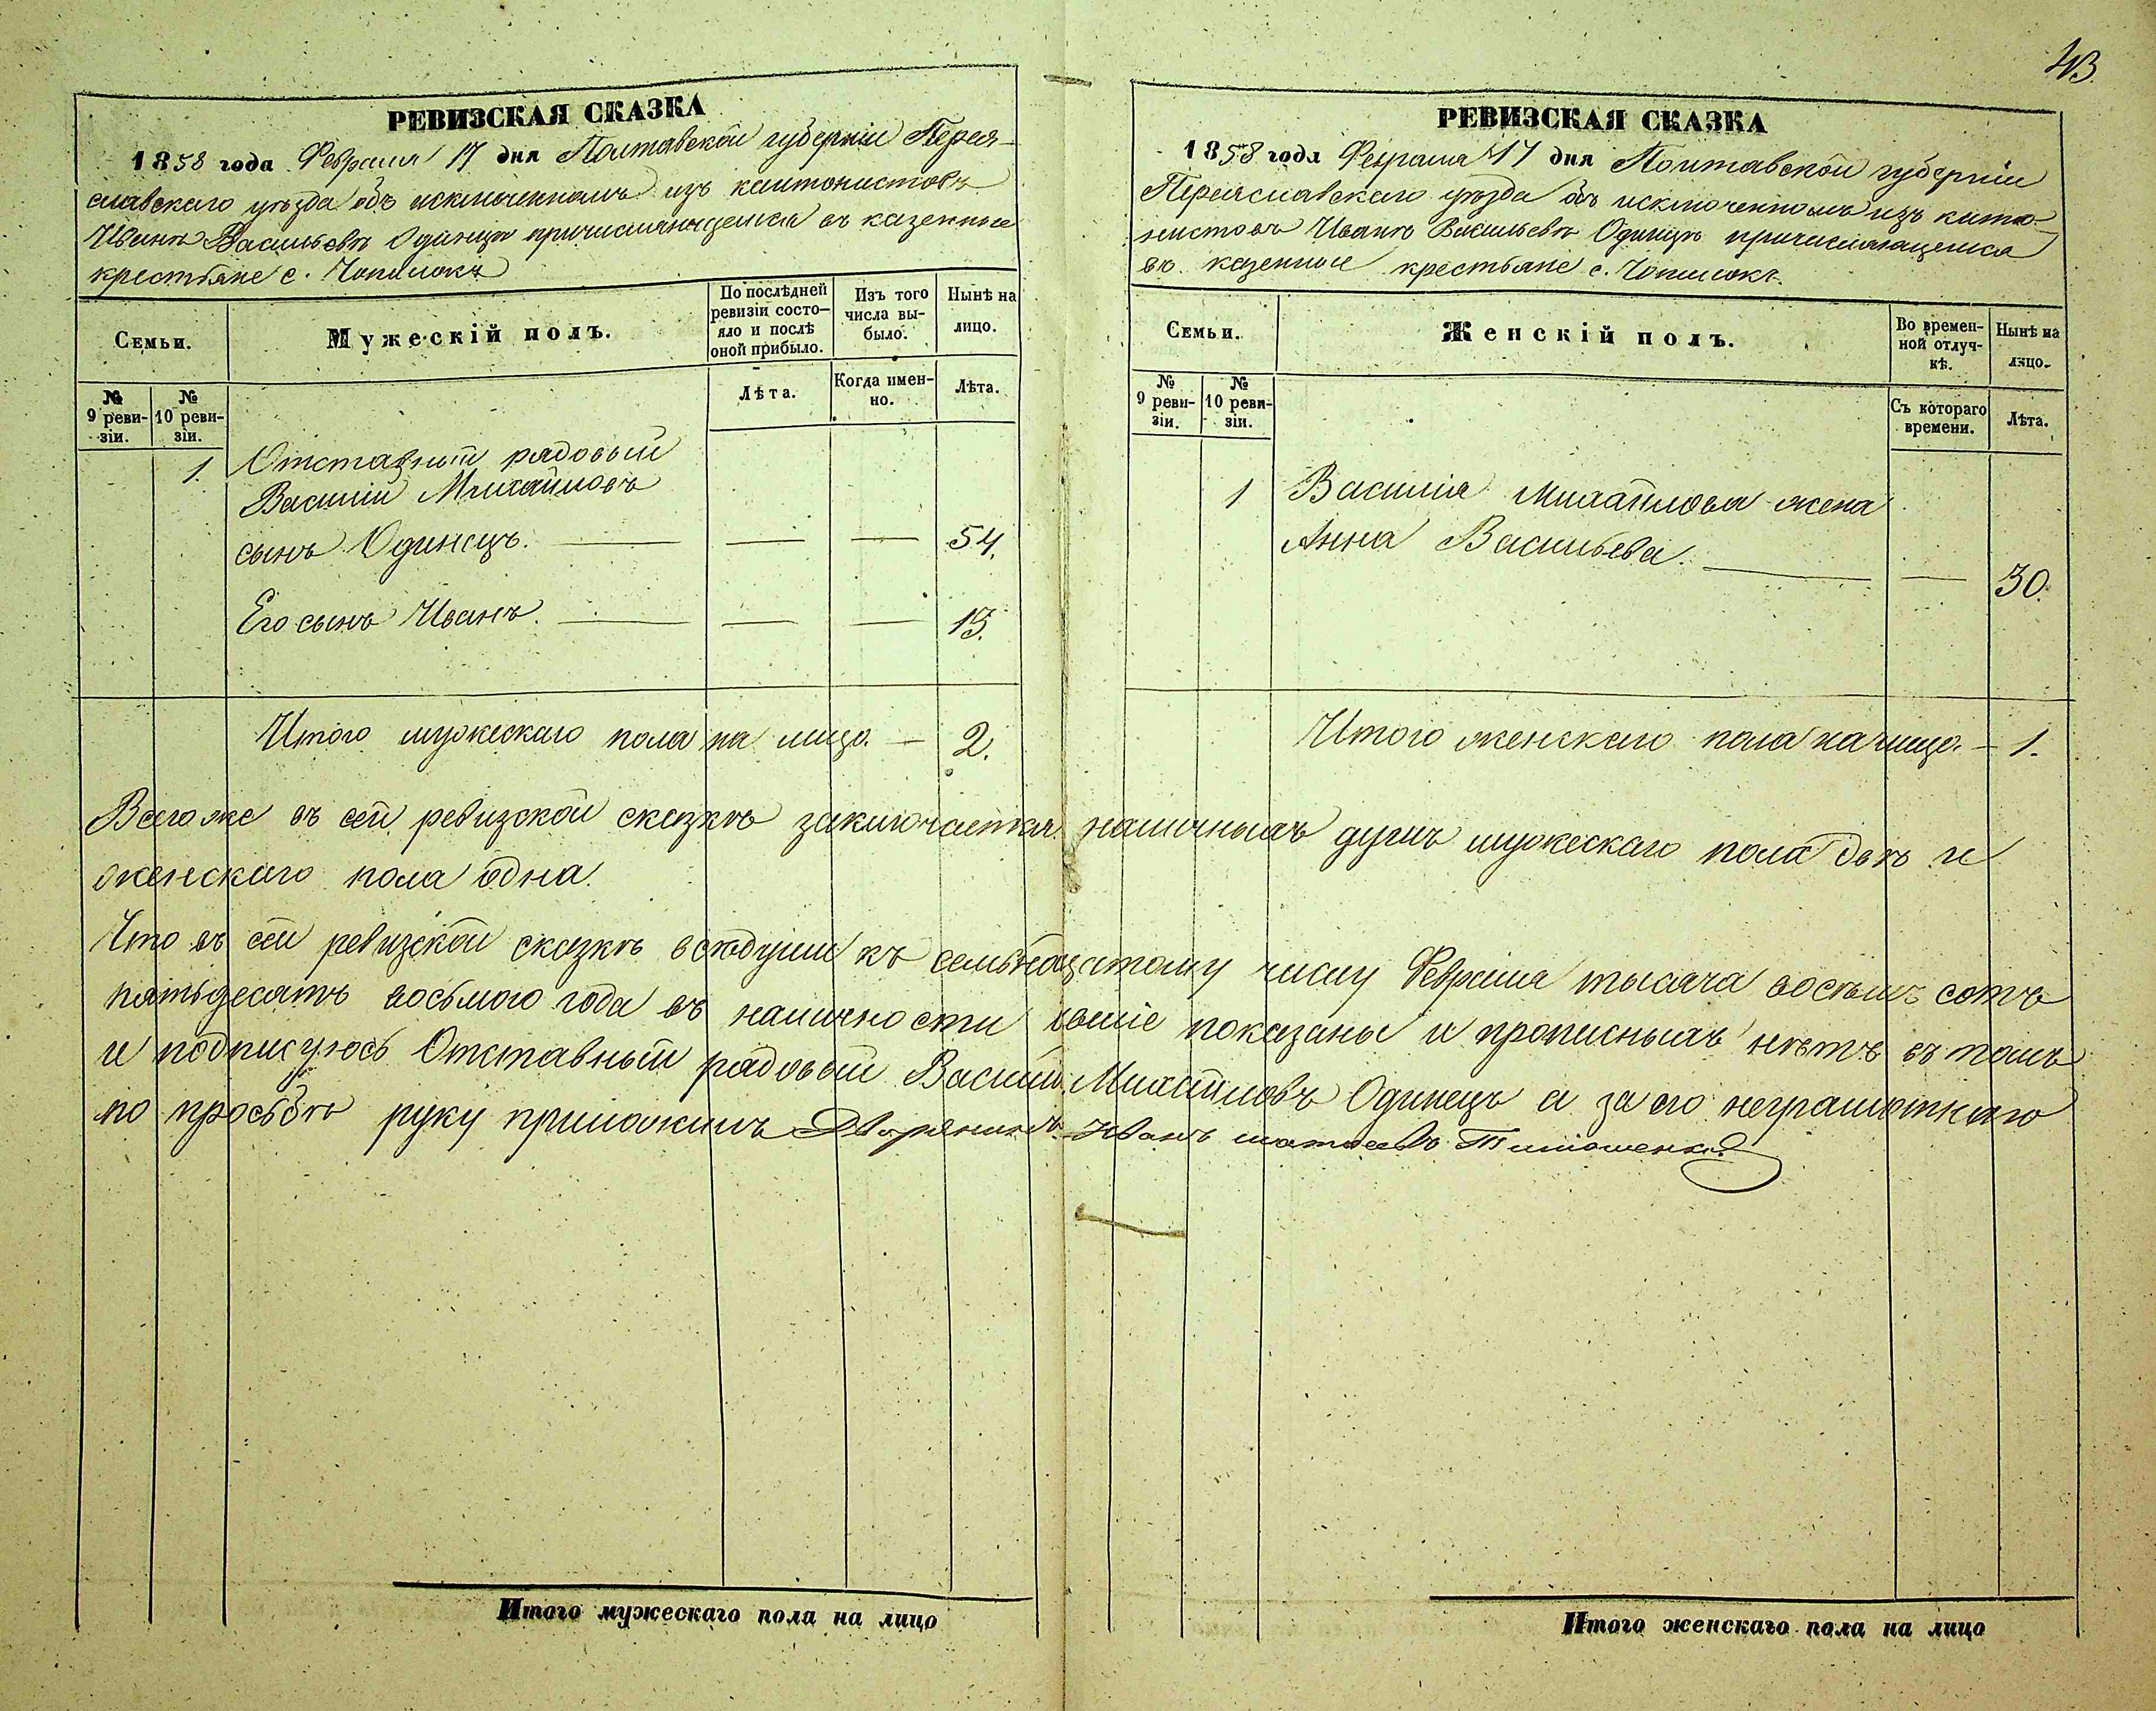 43.
РЕВИЗСКАЯ СКАЗКА
1858 года Февраля 17 дня Полтавской губерніи Перея-
славскаго уѣзда объ исключенномъ изъ кантонистовъ
Иванѣ Васильевѣ Одинцѣ причисляющемся въ казенные
крестьяне с.
Семьи.
Мужескій полъ.
По послѣдней ревизіи состо-
яло и послѣ оной прибыло.
Изъ того числа вы-
было.
Нынѣ на лицо.
№ 9 реви-
зіи.
№ 10 реви-
зіи.
Лѣта.
Когда имен-
но.
Лѣта.
1. Отставный рядовый
Василій Михайловъ
сынъ Одинецъ. — — — 54.
Его сынъ Иванъ. — — — 15.
Итого мужескаго пола на лицо. — 2.
РЕВИЗСКАЯ СКАЗКА
1858 года Февраля 17 дня Полтавской губерніи
Переяславскаго уѣзда объ исключенномъ изъ канто-
нистовъ Иванѣ Васильевѣ Одинцѣ причисляющемся
въ казенные крестьяне с.
Семьи.
Женскій полъ.
Во времен-
ной отлуч-
кѣ.
Нынѣ на лицо.
№ 9 реви-
зіи.
№ 10 реви-
зіи.
Съ котораго времени.
Лѣта.
1 Василія Михайлова жена
Анна Васильева. — — 30.
Итого женскаго пола на лицо. — 1.
Всего же въ сей ревизской сказкѣ заключается наличныхъ душъ мужескаго пола двѣ и
женскаго пола одна.
Что въ сей ревизской сказкѣ всѣ души къ семьнадцатому числу Февраля тысяча восемь сотъ
пятьдесятъ восьмого года въ наличности показаны и прописныхъ нѣтъ въ томъ
и подписуюсь Отставный рядовый Василій Михайловъ Одинецъ а за его неграмотнаго
по просьбѣ руку приложилъ Дворянинъ Иванъ Тимошенко
Итого мужескаго пола на лицо
Итого женскаго пола на лицо